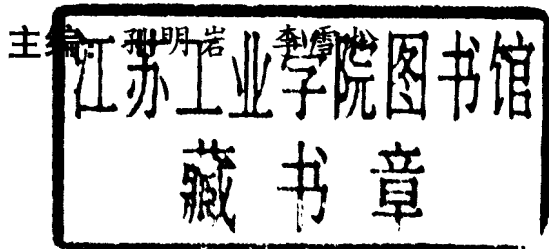 主编：孙明岩 李雪松
江苏工业学院图书馆
藏书章